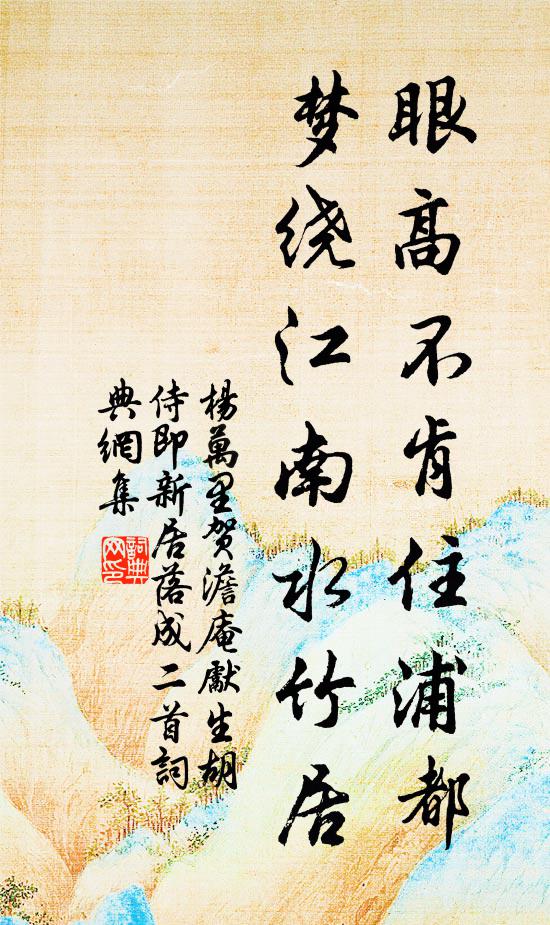 眼高不肯住浦都
梦绕江南水竹居
楊萬里贺澹庵獻生胡
侍即新居落成二首詞
典網集
詞典网印